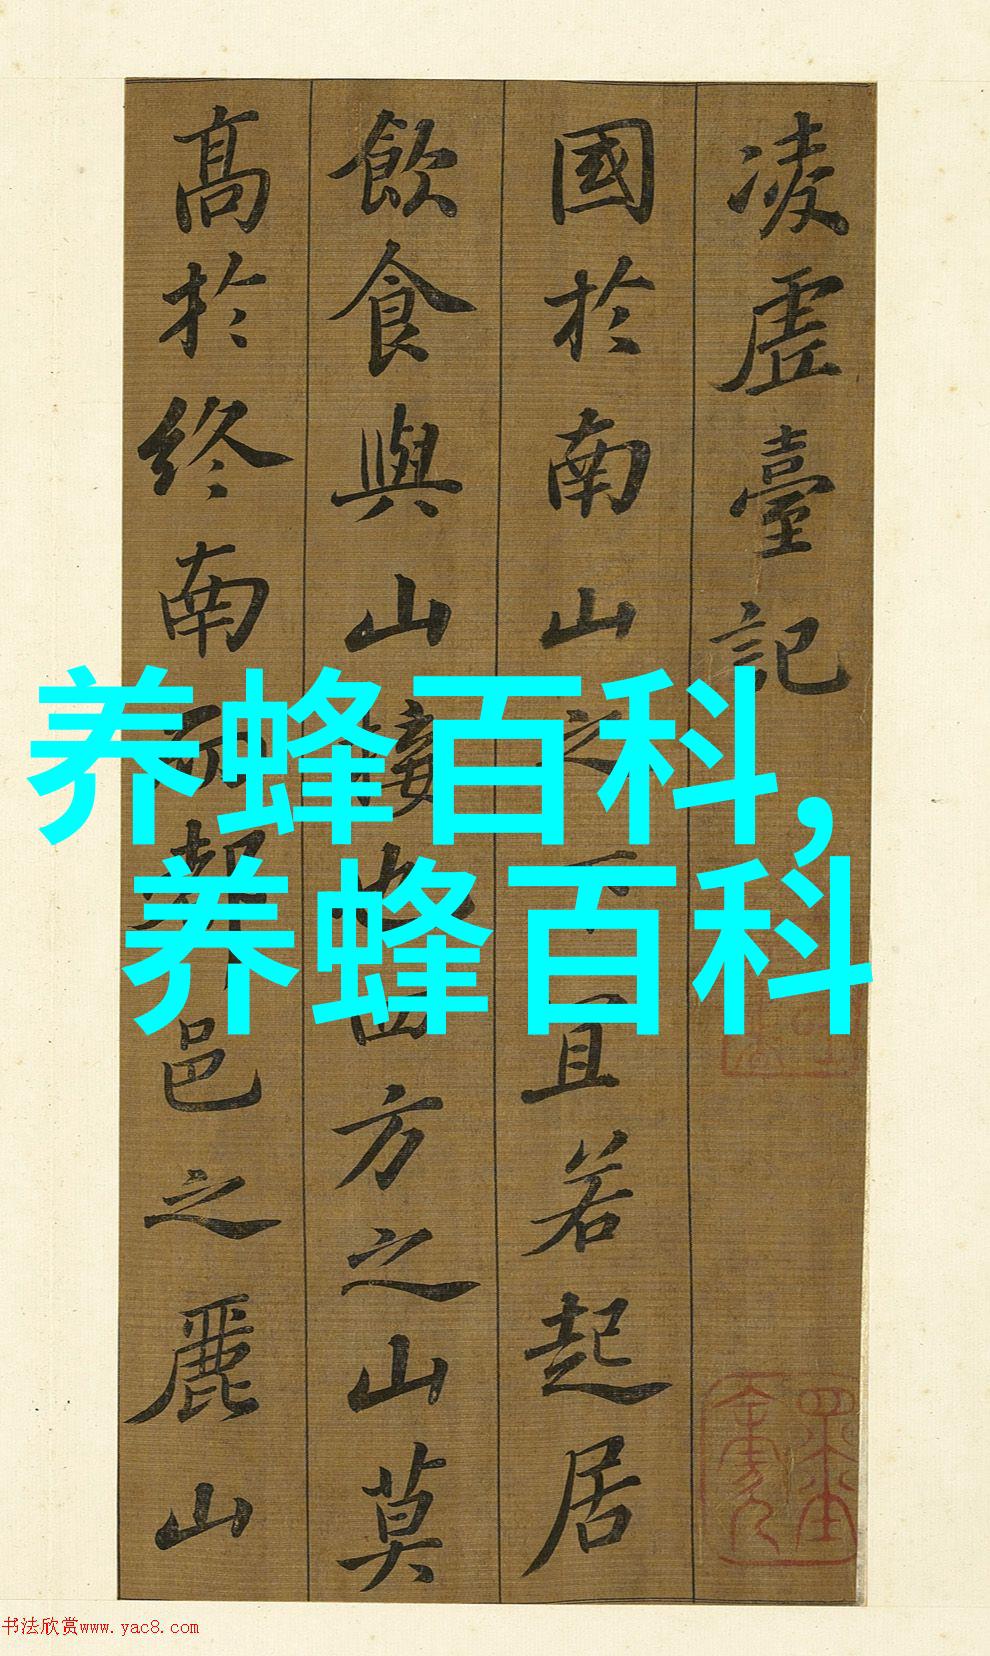 凌虛臺記
國於南山之下且若起居
飲食與山接也四方之山莫
高於終南而都邑之麗山
养蜂百科,
养蜂百科
书法欣赏www.yac8.com